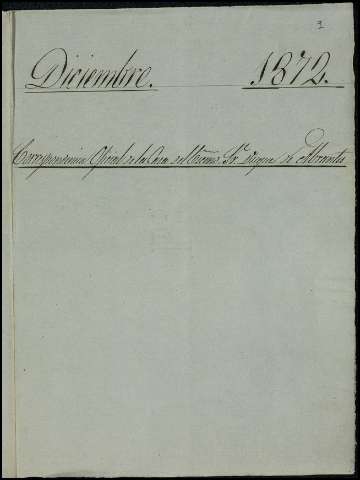 3
Diciembre. 1872.
Correspondencia Oficial de la Casa del Excmo. Sr. Duque de Abrantes